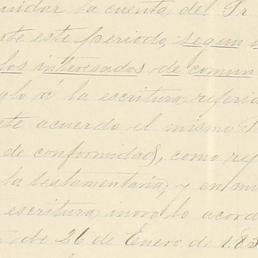 uidar la cuenta del Sr
ste este periodo, segun
los interesados de comun
glo á la escritura referid
ste acuerdo el mismo
de conformidad, como ref
la testamentaria; y en
escritura, invoco lo acord
de 26 de Enero de 185